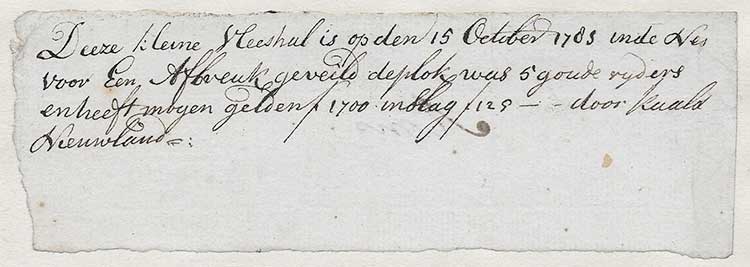 Deeze kleine Vleeshal is op den 15 October 1785 inde Nes
voor Een Afbreuk geveild deplok was 5 goude ryders
en heeft mogen gelden f 1700 inslag f 125 — - door
Nieuwland =: